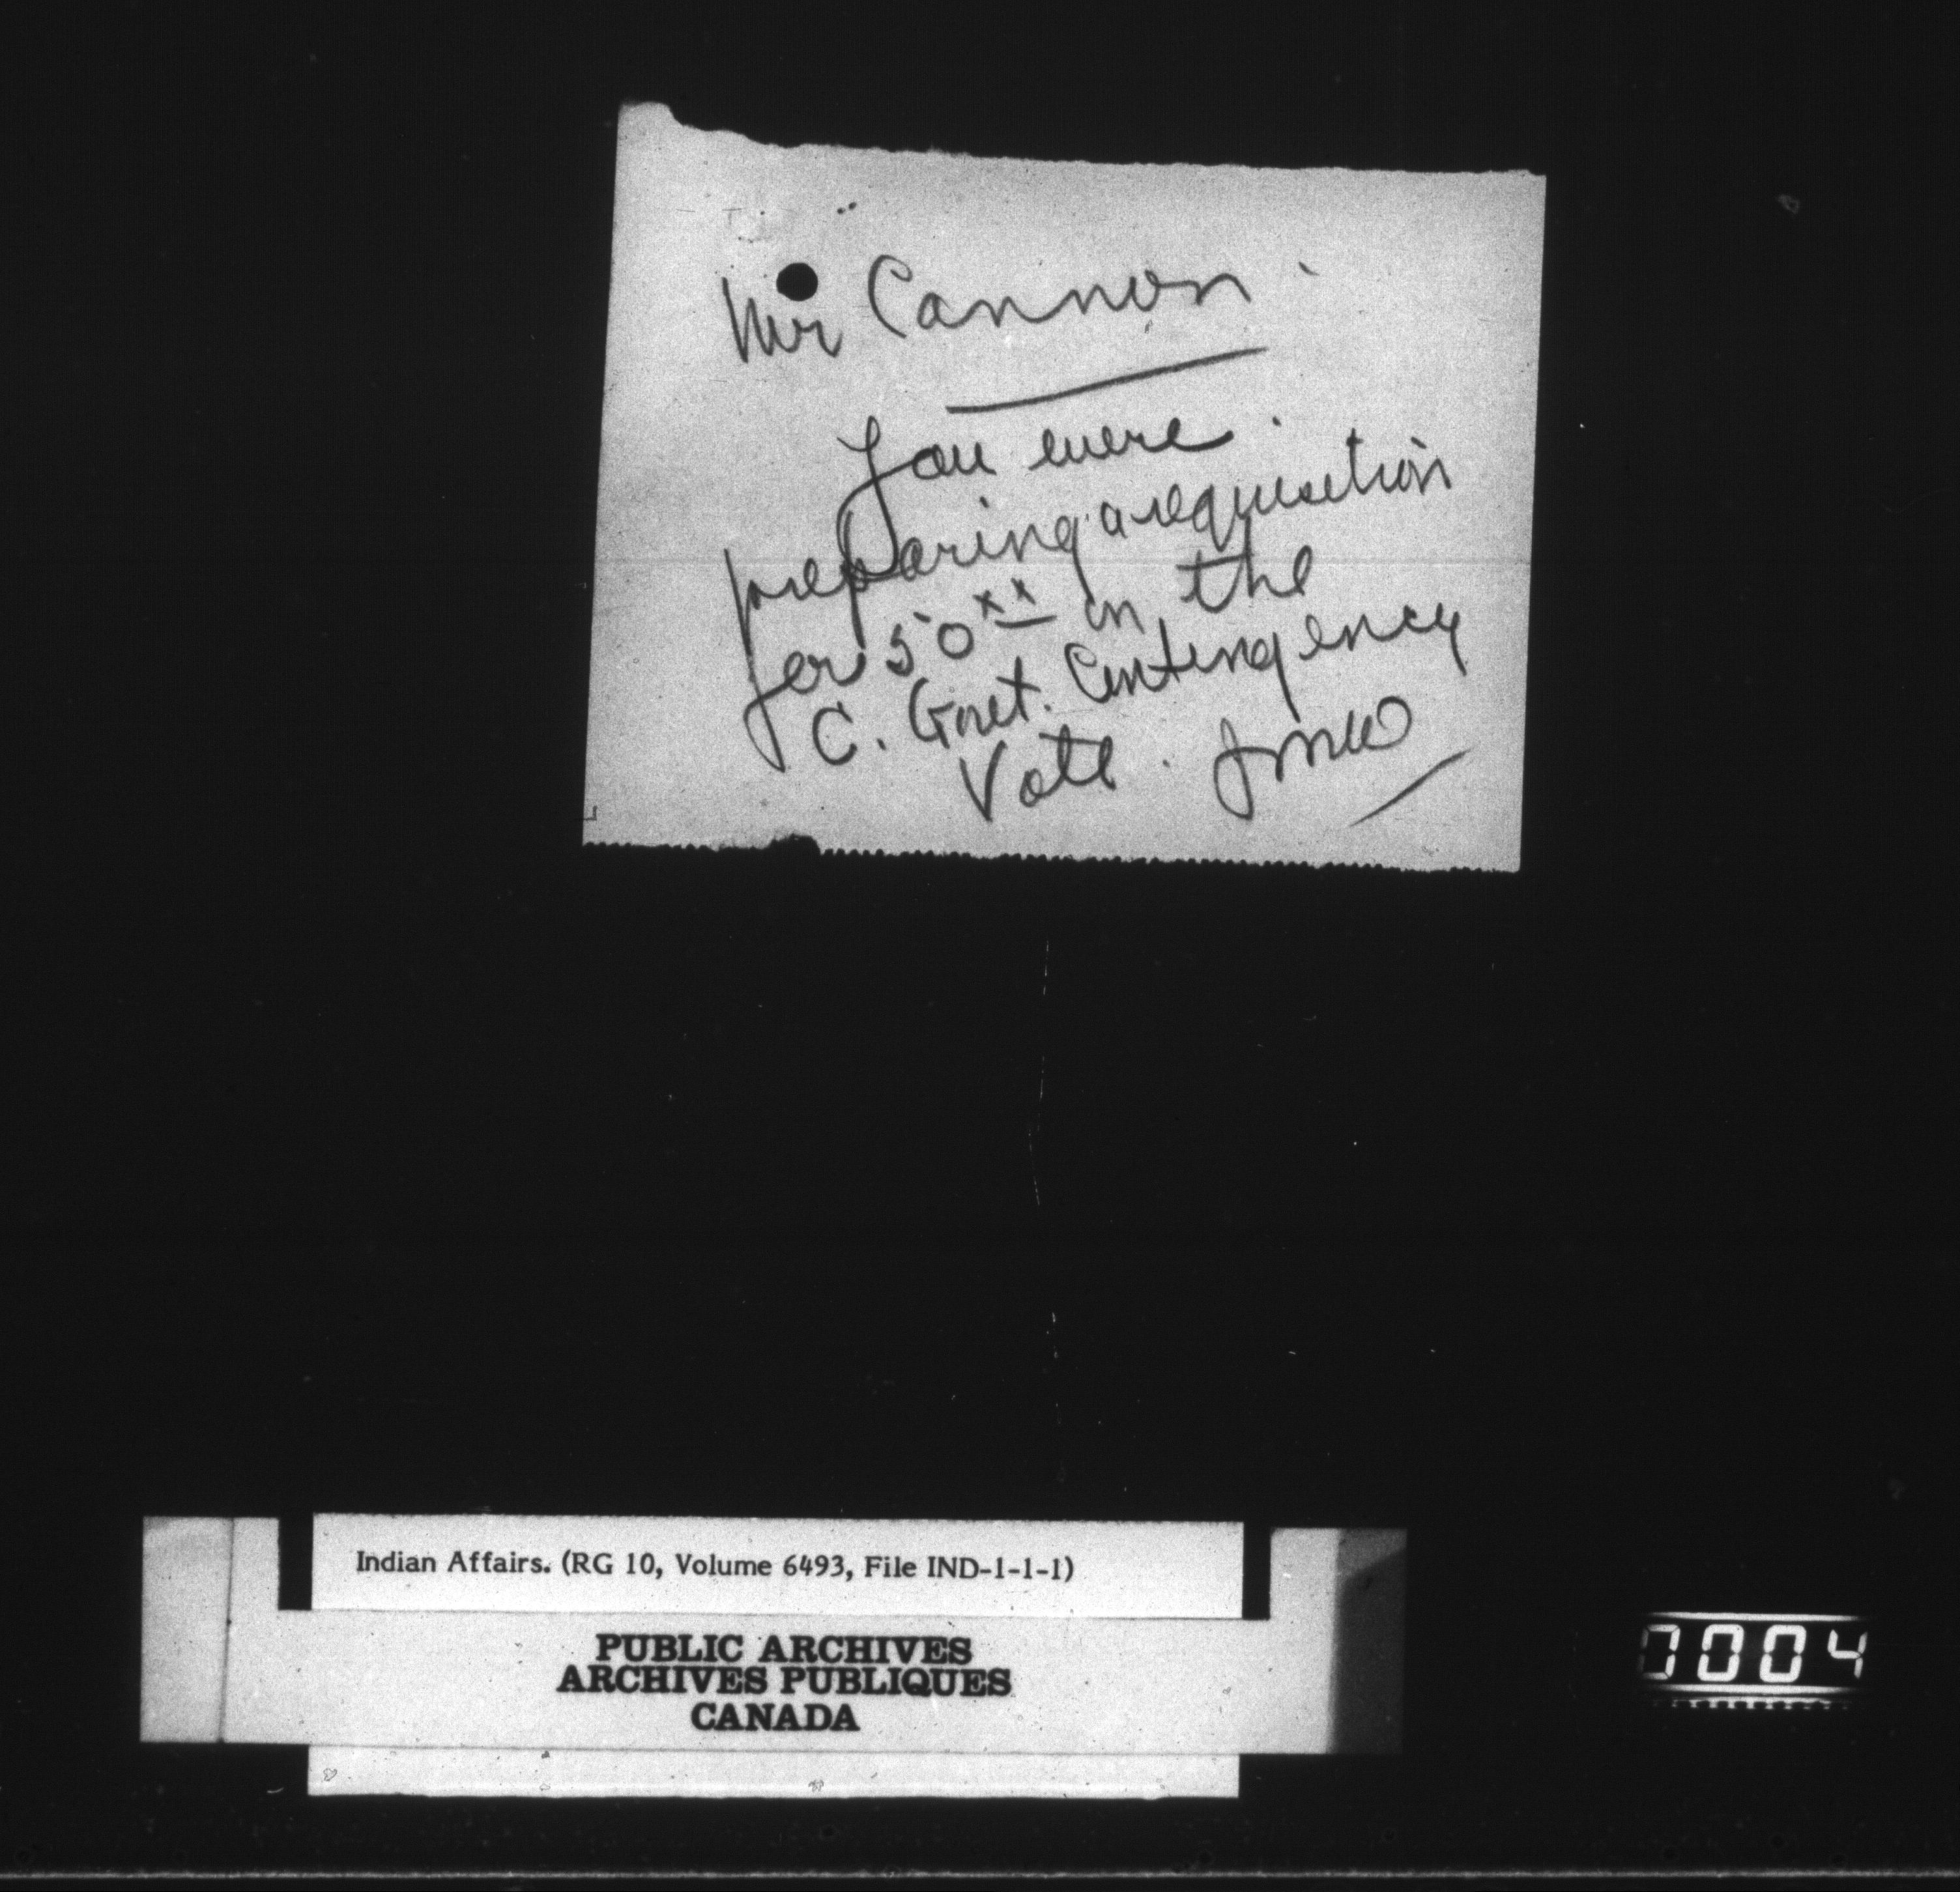 Mr Cannon
You were
preparing a requisition
for 50 xx in the
C. Govt. Contingency
Vote.
Indian Affairs. (RG 10, Volume 6493, File IND-1-1-1)
PUBLIC ARCHIVES
ARCHIVES PUBLIQUES
CANADA
0004